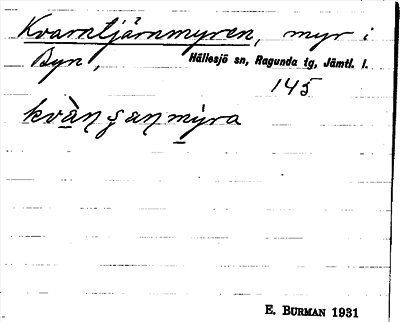 Kvarntjärnmyren, myr i
Byn, Hällesjö sn, Ragunda tg, Jämtl. l.
145
kvàn̢ ʂan mýra
E. BURMAN 1931